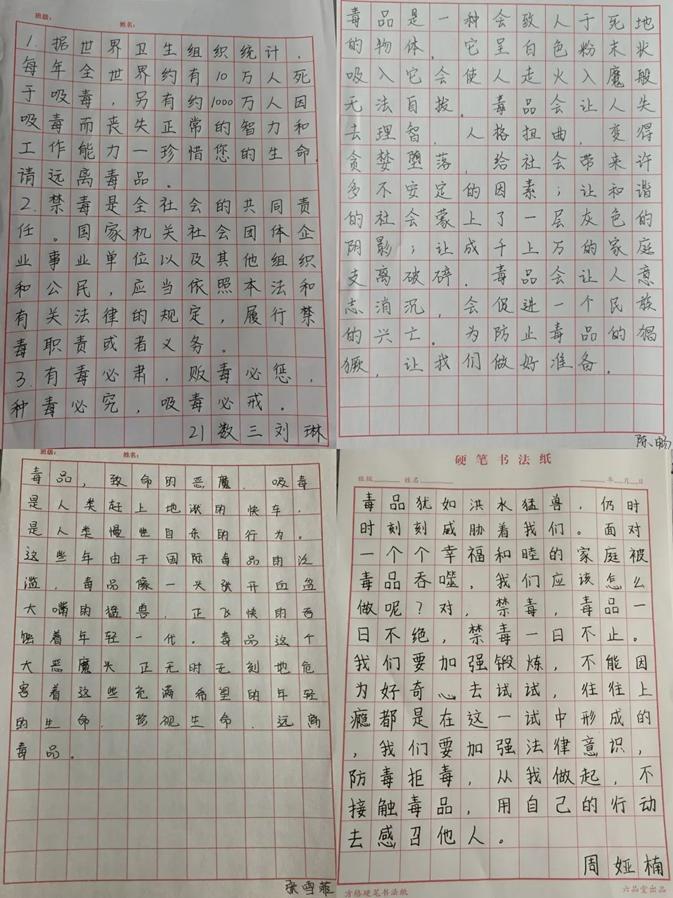 班级： 姓名：
1. 据世界卫生组织统计，
每年全世界约有10万人死
于吸毒，另有约1000万人因
吸毒而丧失正常的智力和
工作能力一珍惜您的生命
请远离毒品。
2. 禁毒是全社会的共同责
任。国家机关社会团体企
业事业单位以及其他组织
和公民，应当依照本法和
有关法律的规定，履行禁
毒职责或者义务。
3. 有毒必肃，贩毒必惩，
种毒必究，吸毒必戒。
21数三刘琳
毒品是一种会致人于死地
的物体，它呈白色粉末状
吸入它会使人走火入魔般
无法自拔。毒品会让人失
去理智，人格扭曲，变得
贪婪堕落，给社会带来许
多不安定的因素；让和谐
的社会蒙上了一层灰色的
阴影；让成千上万的家庭
支离破碎。毒品会让人意
志消沉，会促进一个民族
的兴亡。为防止毒品的猖
獗，让我们做好准备。
陈畅
班级： 姓名：
毒品，致命的恶魔，吸毒
是人类赶上地狱的快车，
是人类慢性自杀的行为。
这些年由于国际毒品的泛
滥，毒品像一头张开血盆
大嘴的猛兽，正飞快的吞
蚀着年轻一代。毒品这个
大恶魔头正无时无刻地危
害着这些充满希望的年轻
的生命，珍视生命，远离
毒品。
张雪菲
硬笔书法纸
班级 姓名 年 月 日
毒品犹如洪水猛兽，仍时
时刻刻威胁着我们。面对
一个个幸福和睦的家庭被
毒品吞噬，我们应该怎么
做呢？对，禁毒，毒品一
日不绝，禁毒一日不止。
我们要加强锻炼，不能因
为好奇心去试试，往往上
瘾都是在这一试中形成的
，我们要加强法律意识，
防毒拒毒，从我做起，不
接触毒品，用自己的行动
去感召他人。
周娅楠
方格硬笔书法纸 六品堂出品